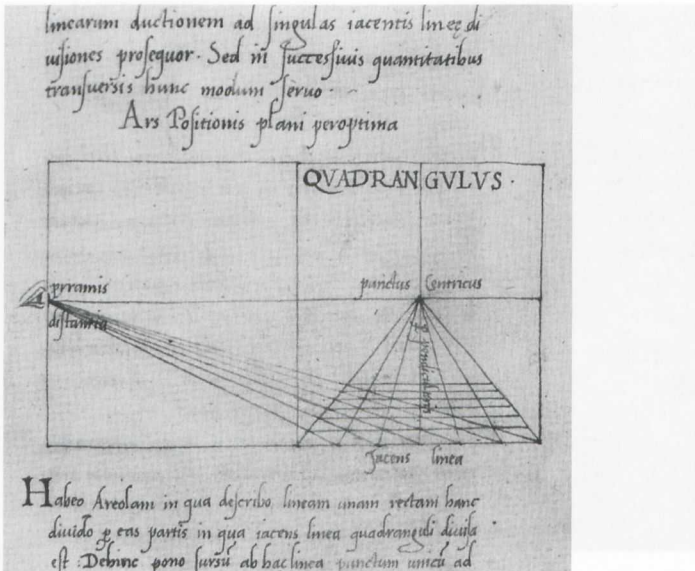 linearum ductionem ad singulas iacentis lineę di
uisiones prosequor. Sed in successiuis quantitatibus
transuersis hunc modum seruo.
Ars Positionis plani peroptima
QVADRANGVLVS.
pyramis
punctus Centricus
distantia
Jacens linea
Habeo Areolam in qua describo lineam unam rectam hanc
diuido p eas partis in qua iacens linea quadranguli diuisa
est. Dehinc pono sursū ab hac linea punctum unicū ad